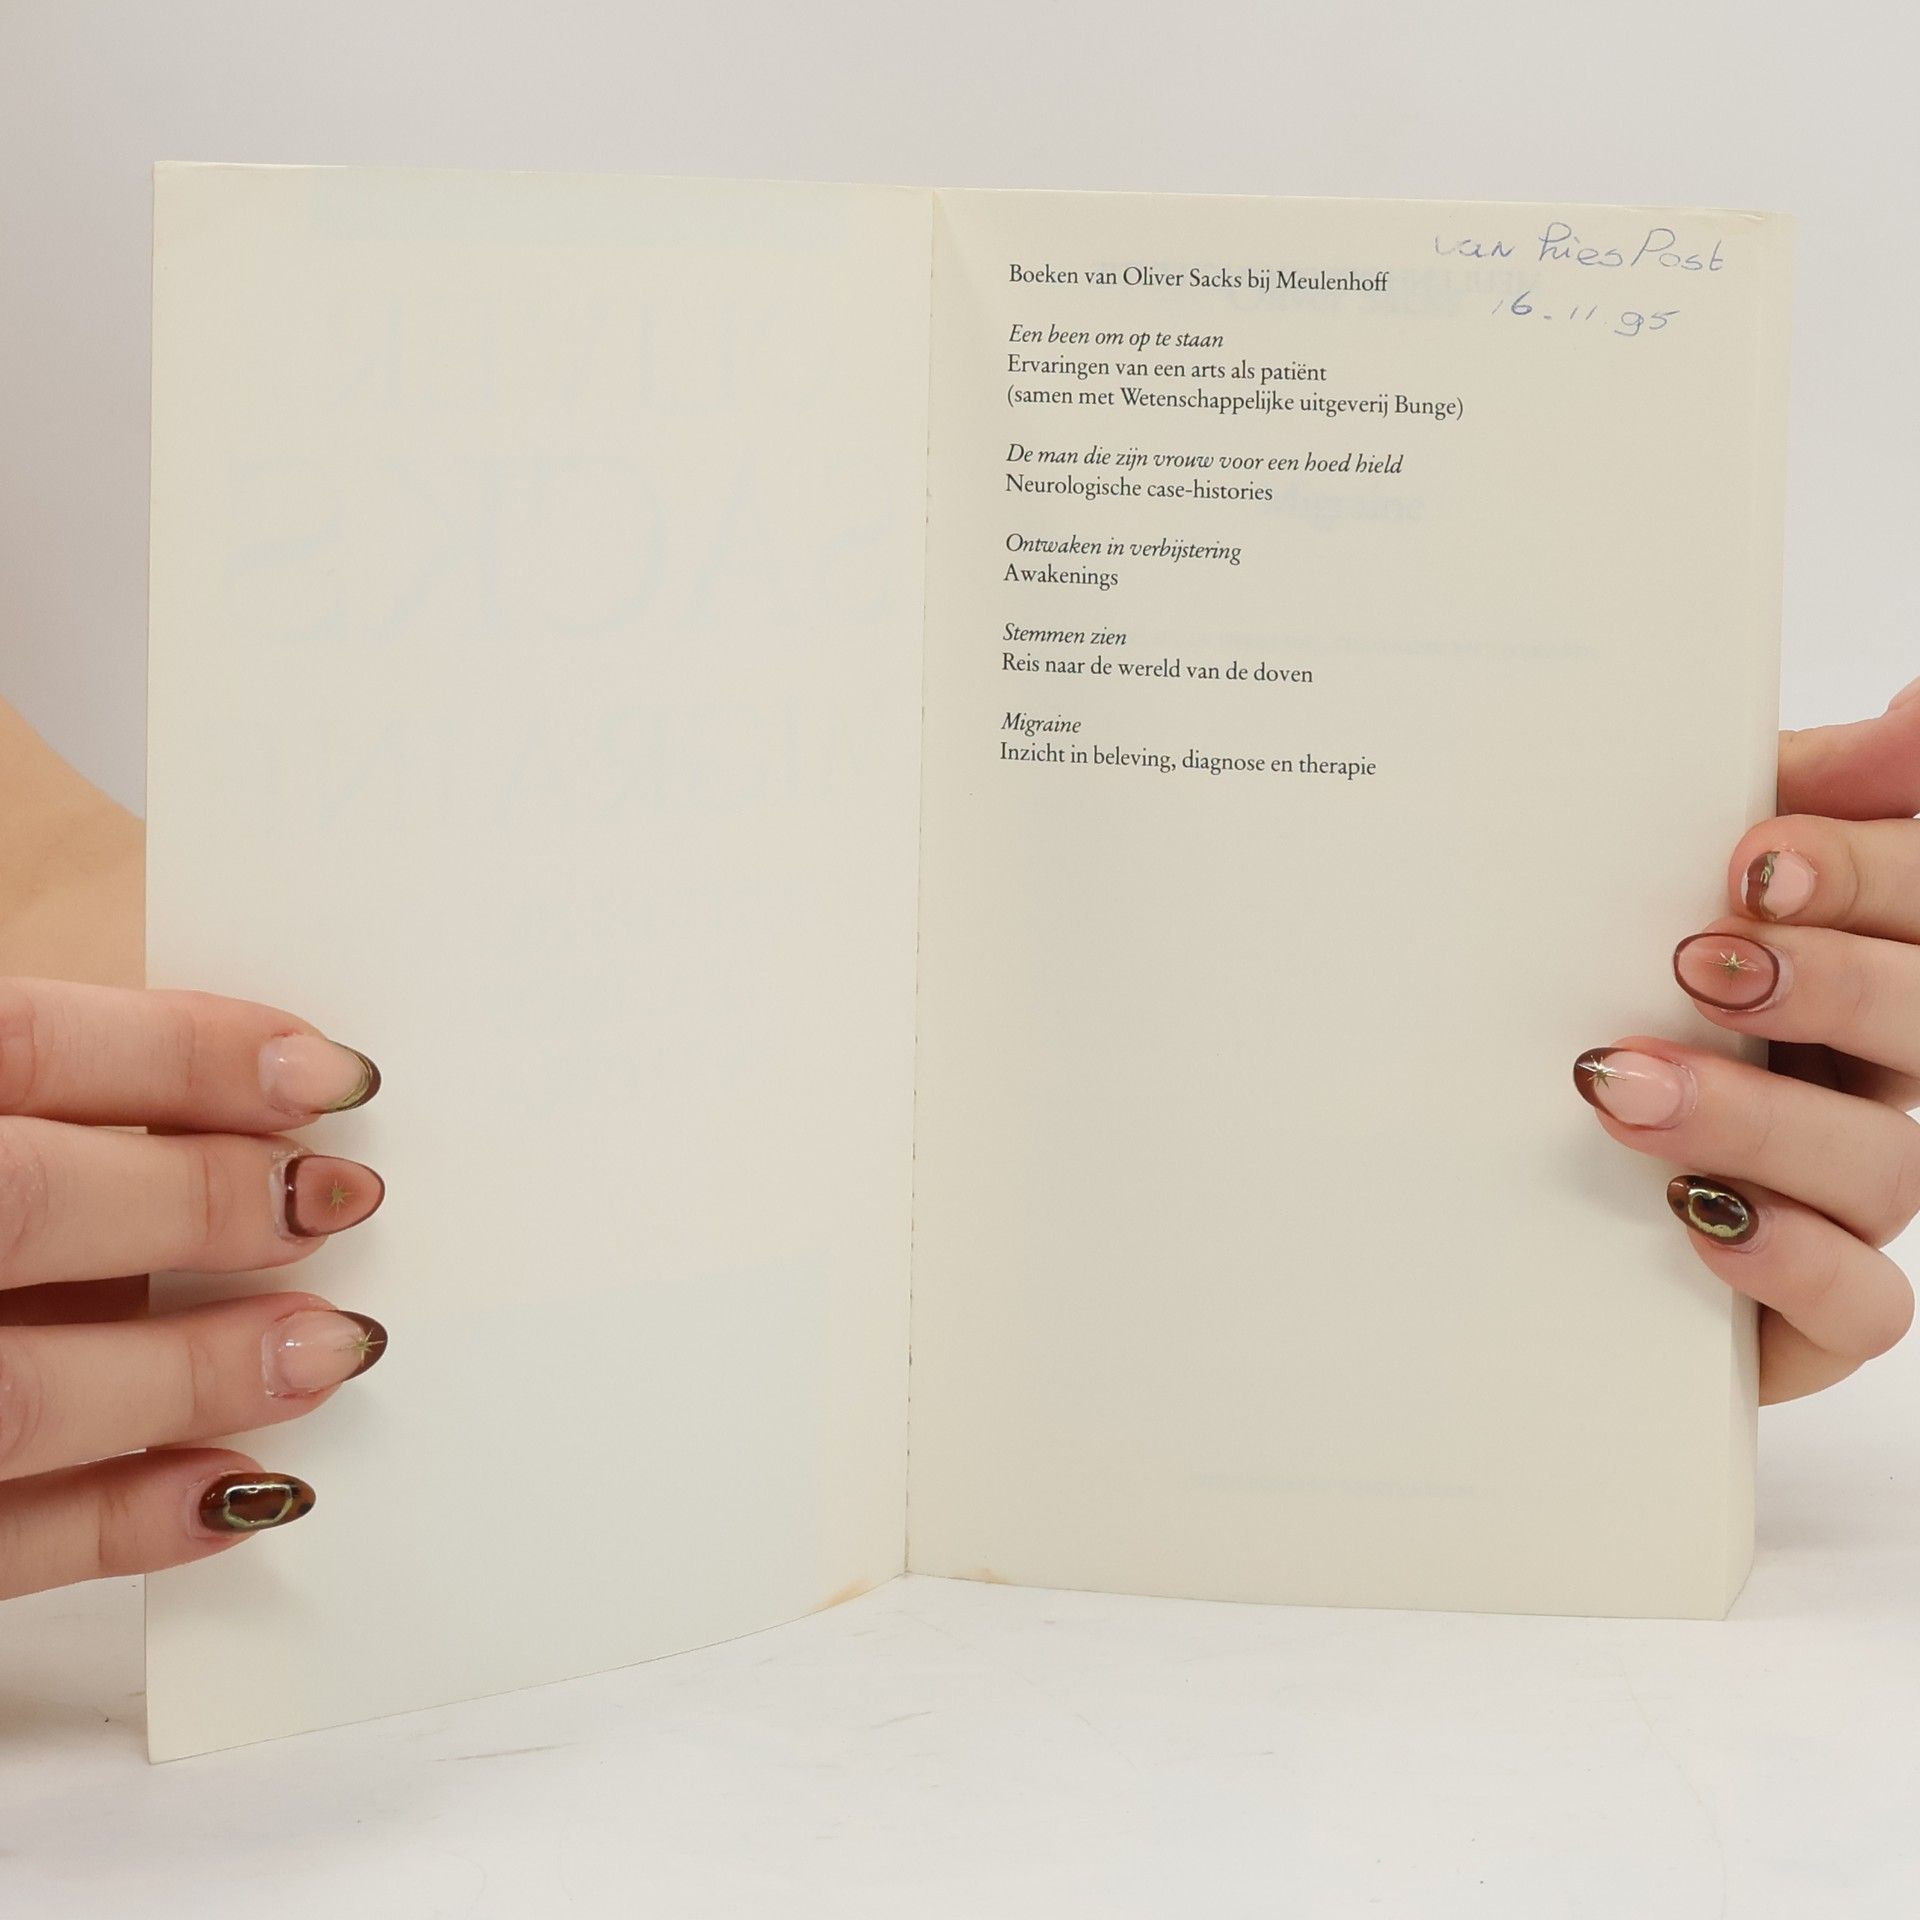 van Ries Post
16-11 95
Boeken van Oliver Sacks bij Meulenhoff
Een been om op te staan
Ervaringen van een arts als patiënt
(samen met Wetenschappelijke uitgeverij Bunge)
De man die zijn vrouw voor een hoed hield
Neurologische case-histories
Ontwaken in verbijstering
Awakenings
Stemmen zien
Reis naar de wereld van de doven
Migraine
Inzicht in beleving, diagnose en therapie